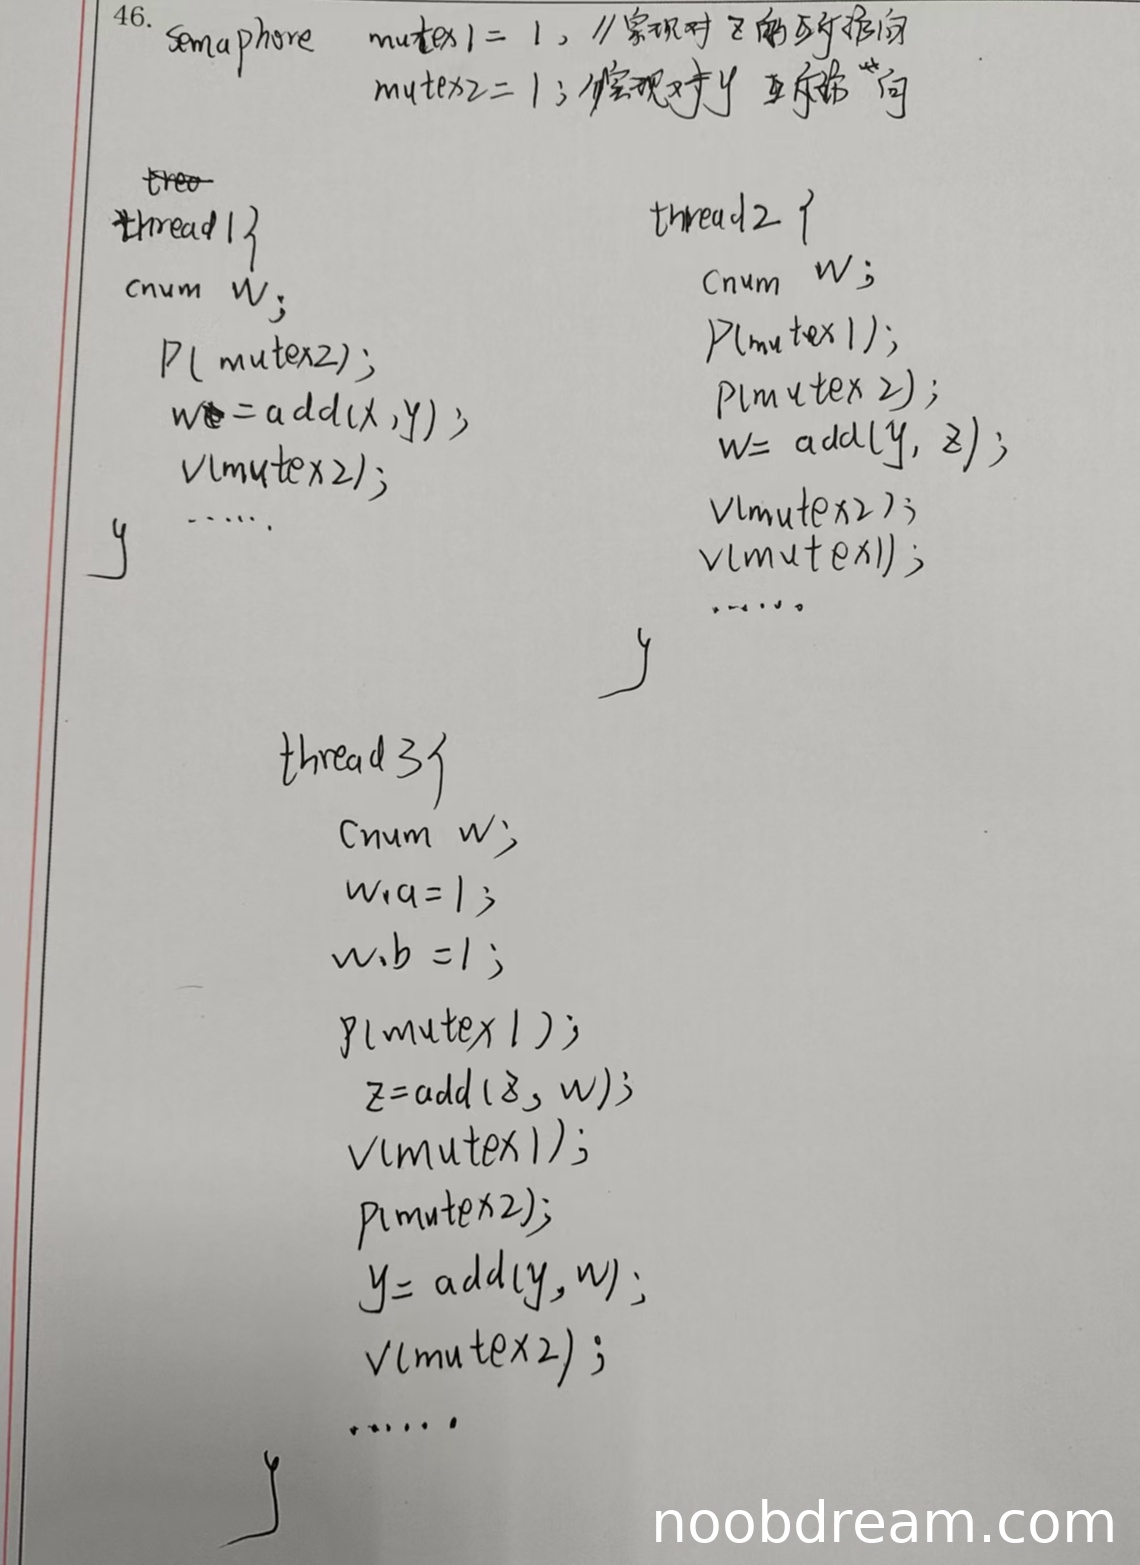 46.
semaphore mutex1 = 1, //实现对 z 的互斥访问
mutex2 = 1; //实现对y 互斥访问
thread1{
cnum w;
P(mutex2);
w = add(x,y);
V(mutex2);
......
}
thread2 {
cnum w;
P(mutex1);
P(mutex2);
w= add(y, z);
V(mutex2);
V(mutex1);
......
}
thread3{
cnum w;
w.a=1;
w.b =1;
P(mutex1);
z=add(z, w);
V(mutex1);
P(mutex2);
y= add(y, w);
V(mutex2);
......
}
noobdream.com